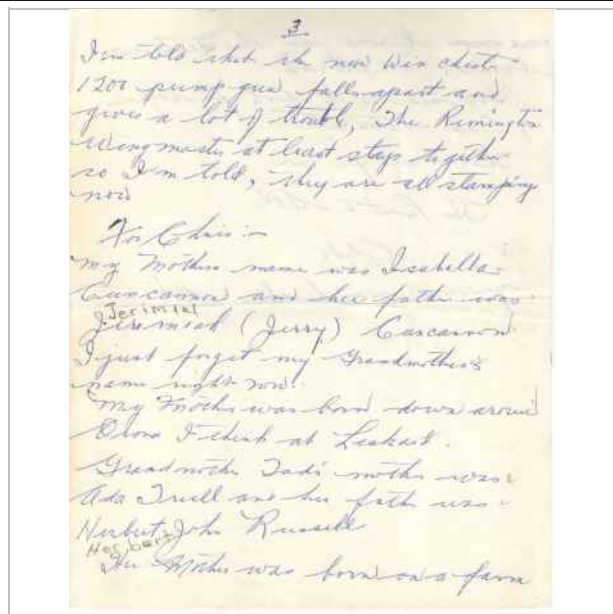 3.
I'm told that the new Winchester
1200 pump gun falls apart and
gives a lot of trouble, The Remington
Wingmaster at least stays together
so I'm told, they are all stamping
now
For Chris:-
My Mothers name was Isabella
Cancannon and her father was
Jerimiah
Jeremiah (Jerry) Cancannon
I just forget my Grandmother's
name right now.
My Mother was born down around
Orono I think at Leskard.
Grandmother Dad's mother was
Ada Truell and her father was
Herbert John Russell
Herbert
Her Mother was born on a farm